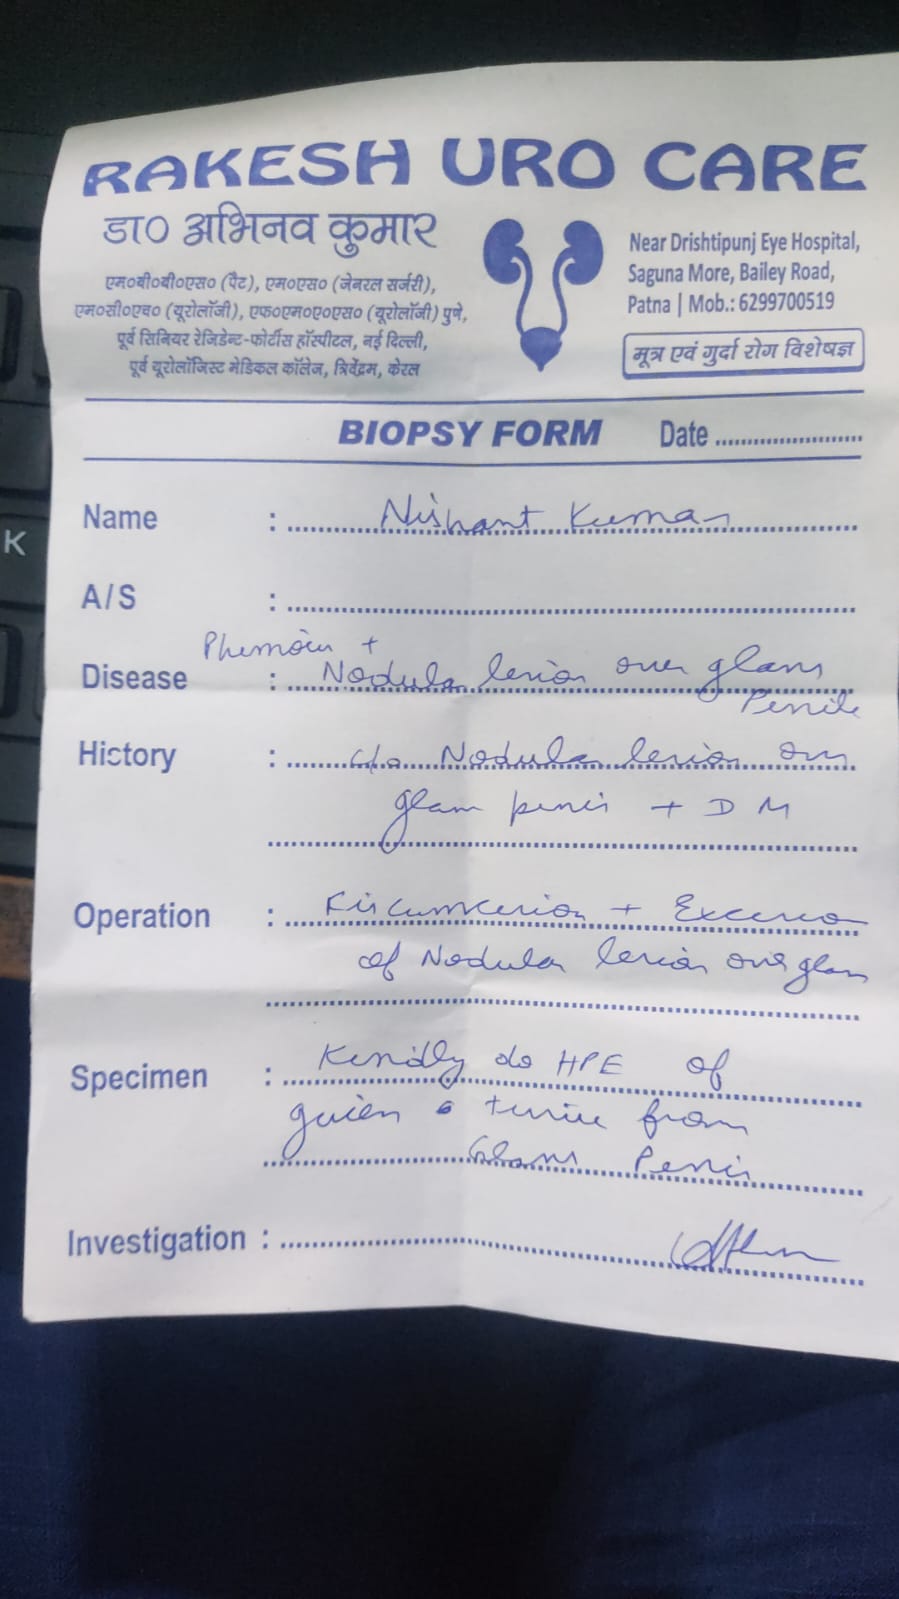 RAKESH URO CARE
डा० अभिनव कुमार
एम०बी०बी०एस० (पैट), एम०एस० (जेनरल सर्जरी),
एम०सी०एच० (यूरोलॉजी), एफ०एम०ए०एस० (यूरोलॉजी) पुणे,
पूर्व सिनियर रेजिडेन्ट-फोर्टीस हॉस्पीटल, नई दिल्ली,
पूर्व यूरोलॉजिस्ट मेडिकल कॉलेज, त्रिवेंद्रम, केरल
Near Drishtipunj Eye Hospital,
Saguna More, Bailey Road,
Patna | Mob.: 6299700519
मूत्र एवं गुर्दा रोग विशेषज्ञ
BIOPSY FORM Date
Name : Nishant Kumar
A/S :
Phimosis +
Disease : Nodular lesion over glans
Penile
Hictory : c/o Nodular lesion over
glans penis + DM
Operation : Circumcision + Excision
of Nodular lesion over glans
Specimen : Kindly do HPE of
given tissue from
Glans Penis
Investigation :
K